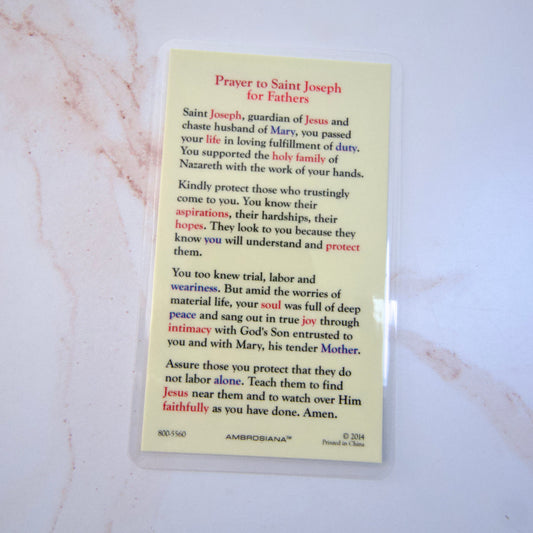 Prayer to Saint Joseph
for Fathers
Saint Joseph, guardian of Jesus and
chaste husband of Mary, you passed
your life in loving fulfillment of duty.
You supported the holy family of
Nazareth with the work of your hands.
Kindly protect those who trustingly
come to you. You know their
aspirations, their hardships, their
hopes. They look to you because they
know you will understand and protect
them.
You too knew trial, labor and
weariness. But amid the worries of
material life, your soul was full of deep
peace and sang out in true joy through
intimacy with God's Son entrusted to
you and with Mary, his tender Mother.
Assure those you protect that they do
not labor alone. Teach them to find
Jesus near them and to watch over Him
faithfully as you have done. Amen.
800-5560 AMBROSIANA™ © 2014
Printed in China